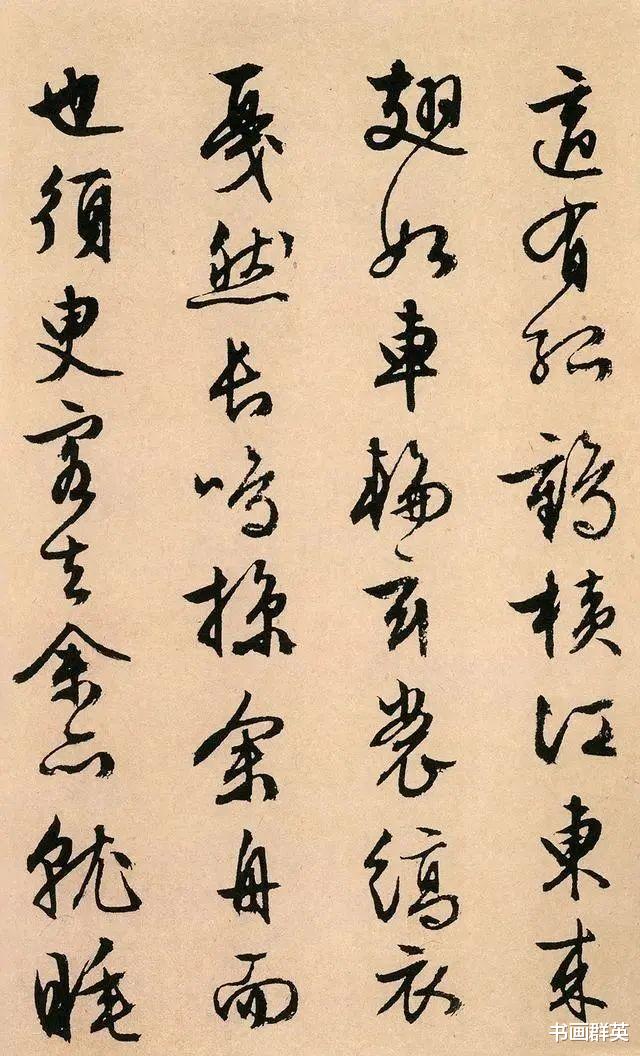 適有孤鶴橫江東來
翅如車輪玄裳縞衣
戛然長鳴掠余舟而
也須臾客去余亦就睡
书画群英